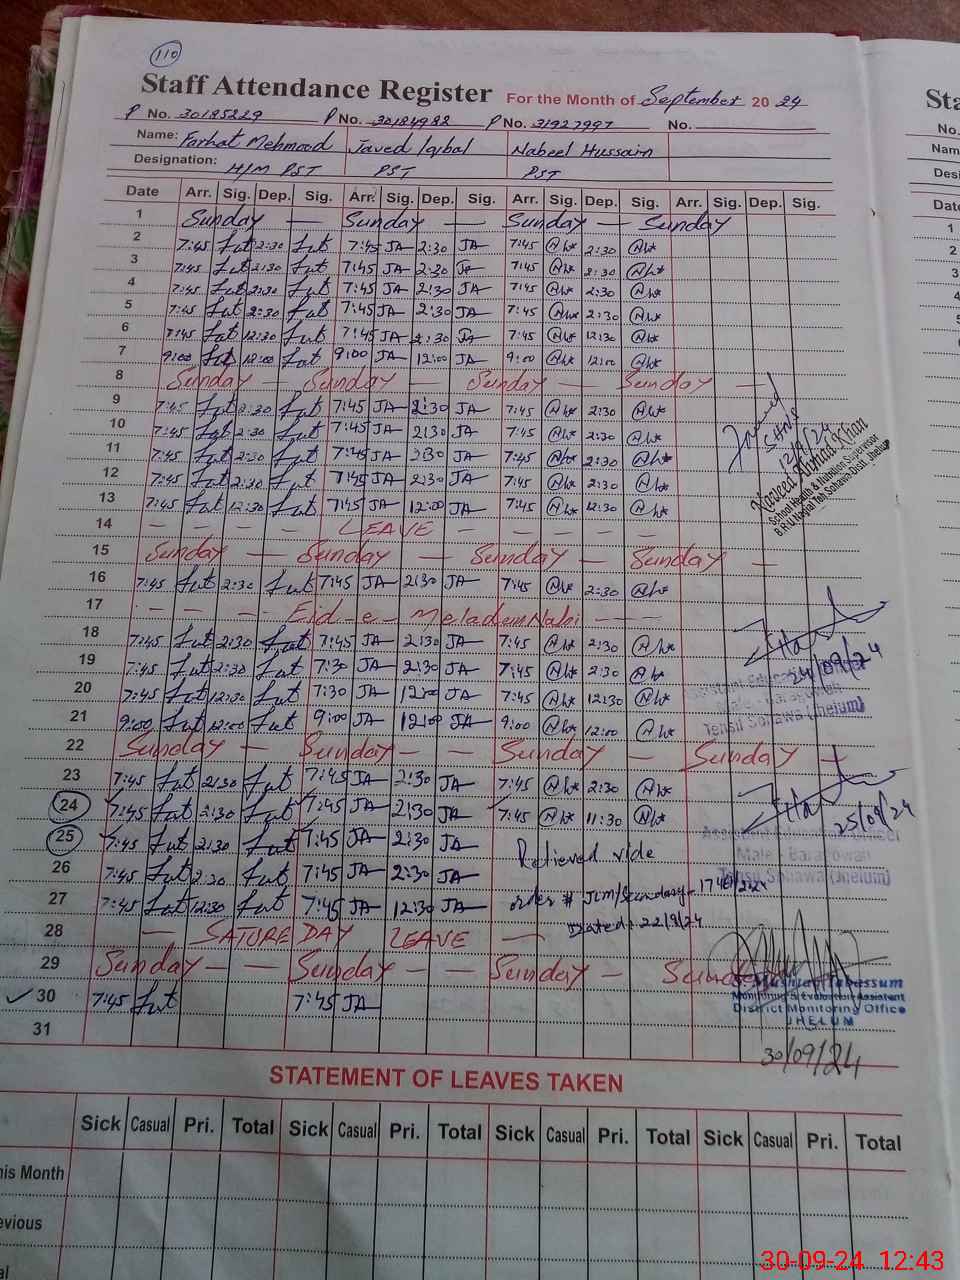 110
Staff Attendance Register For the Month of September 20 24
P No. 30185229 P No. 30184982 P No. 31927997 No.
Name: Farhat Mehmood Javed Iqbal Nabeel Hussain
Designation: H/M PST PST PST
Date Arr. Sig. Dep. Sig. Arr. Sig. Dep. Sig. Arr. Sig. Dep. Sig. Arr. Sig. Dep. Sig.
1 Sunday — Sunday — Sunday — Sunday
2 7:45 2:30 7:45 JA 2:30 JA 7:45 2:30
3 7:45 2:30 7:45 JA 2:30 JA 7:45 2:30
4 7:45 2:30 7:45 JA 2:30 JA 7:45 2:30
5 7:45 2:30 7:45 JA 2:30 JA 7:45 2:30
6 7:45 12:30 7:45 JA 2:30 JA 7:45 12:30
7 9:00 12:00 9:00 JA 12:00 JA 9:00 12:00
8 Sunday — Sunday — Sunday — Sunday —
9 7:45 2:30 7:45 JA 2:30 JA 7:45 2:30
10 7:45 2:30 7:45 JA 2:30 JA 7:45 2:30
11 7:45 2:30 7:45 JA 2:30 JA 7:45 2:30
12 7:45 2:30 7:45 JA 2:30 JA 7:45 2:30
13 7:45 12:30 7:45 JA 12:00 JA 7:45 12:30
14 — — — — LEAVE — — — — —
15 Sunday — Sunday — Sunday — Sunday —
16 7:45 2:30 7:45 JA 2:30 JA 7:45 2:30
17 - - - - Eid-e-meladunNabi - - -
18 7:45 2:30 7:45 JA 2:30 JA 7:45 2:30
19 7:45 2:30 7:30 JA 2:30 JA 7:45 2:30
20 7:45 12:30 7:30 JA 12:00 JA 7:45 12:30
21 9:00 12:00 9:00 JA 12:00 JA 9:00 12:00
22 Sunday — Sunday - - Sunday — Sunday —
23 7:45 2:30 7:45 JA 2:30 JA 7:45 2:30
24 7:45 2:30 7:45 JA 2:30 JA 7:45 11:30
25 7:45 2:30 7:45 JA 2:30 JA Relieved vide
26 7:45 2:30 7:45 JA 2:30 JA
27 7:45 12:30 7:45 JA 12:30 JA order # Jlm/Secondary-
Dated: 22/9/24
28 — SATUREDAY LEAVE —
29 Sunday - - Sunday - - Sunday - Sunday
30 7:45 7:45 JA
31
SHNS
12/9/24
Naseed Ahmad Khan
School Health & Nutrition Supervisor
24/09/24
Tehsil Sohawa (Jhelum)
25/09/24
Assistant Education Officer
Male - Baragowah
Tehsil Sohawa (Jhelum)
Mushtaq Tabassum
Monitoring & Evaluation Assistant
District Monitoring Office
JHELUM
30/09/24
STATEMENT OF LEAVES TAKEN
Sick Casual Pri. Total Sick Casual Pri. Total Sick Casual Pri. Total Sick Casual Pri. Total
his Month
evious
al
Sta
No.
Nam
Desi
Date
1
2
3
30-09-24 12:43